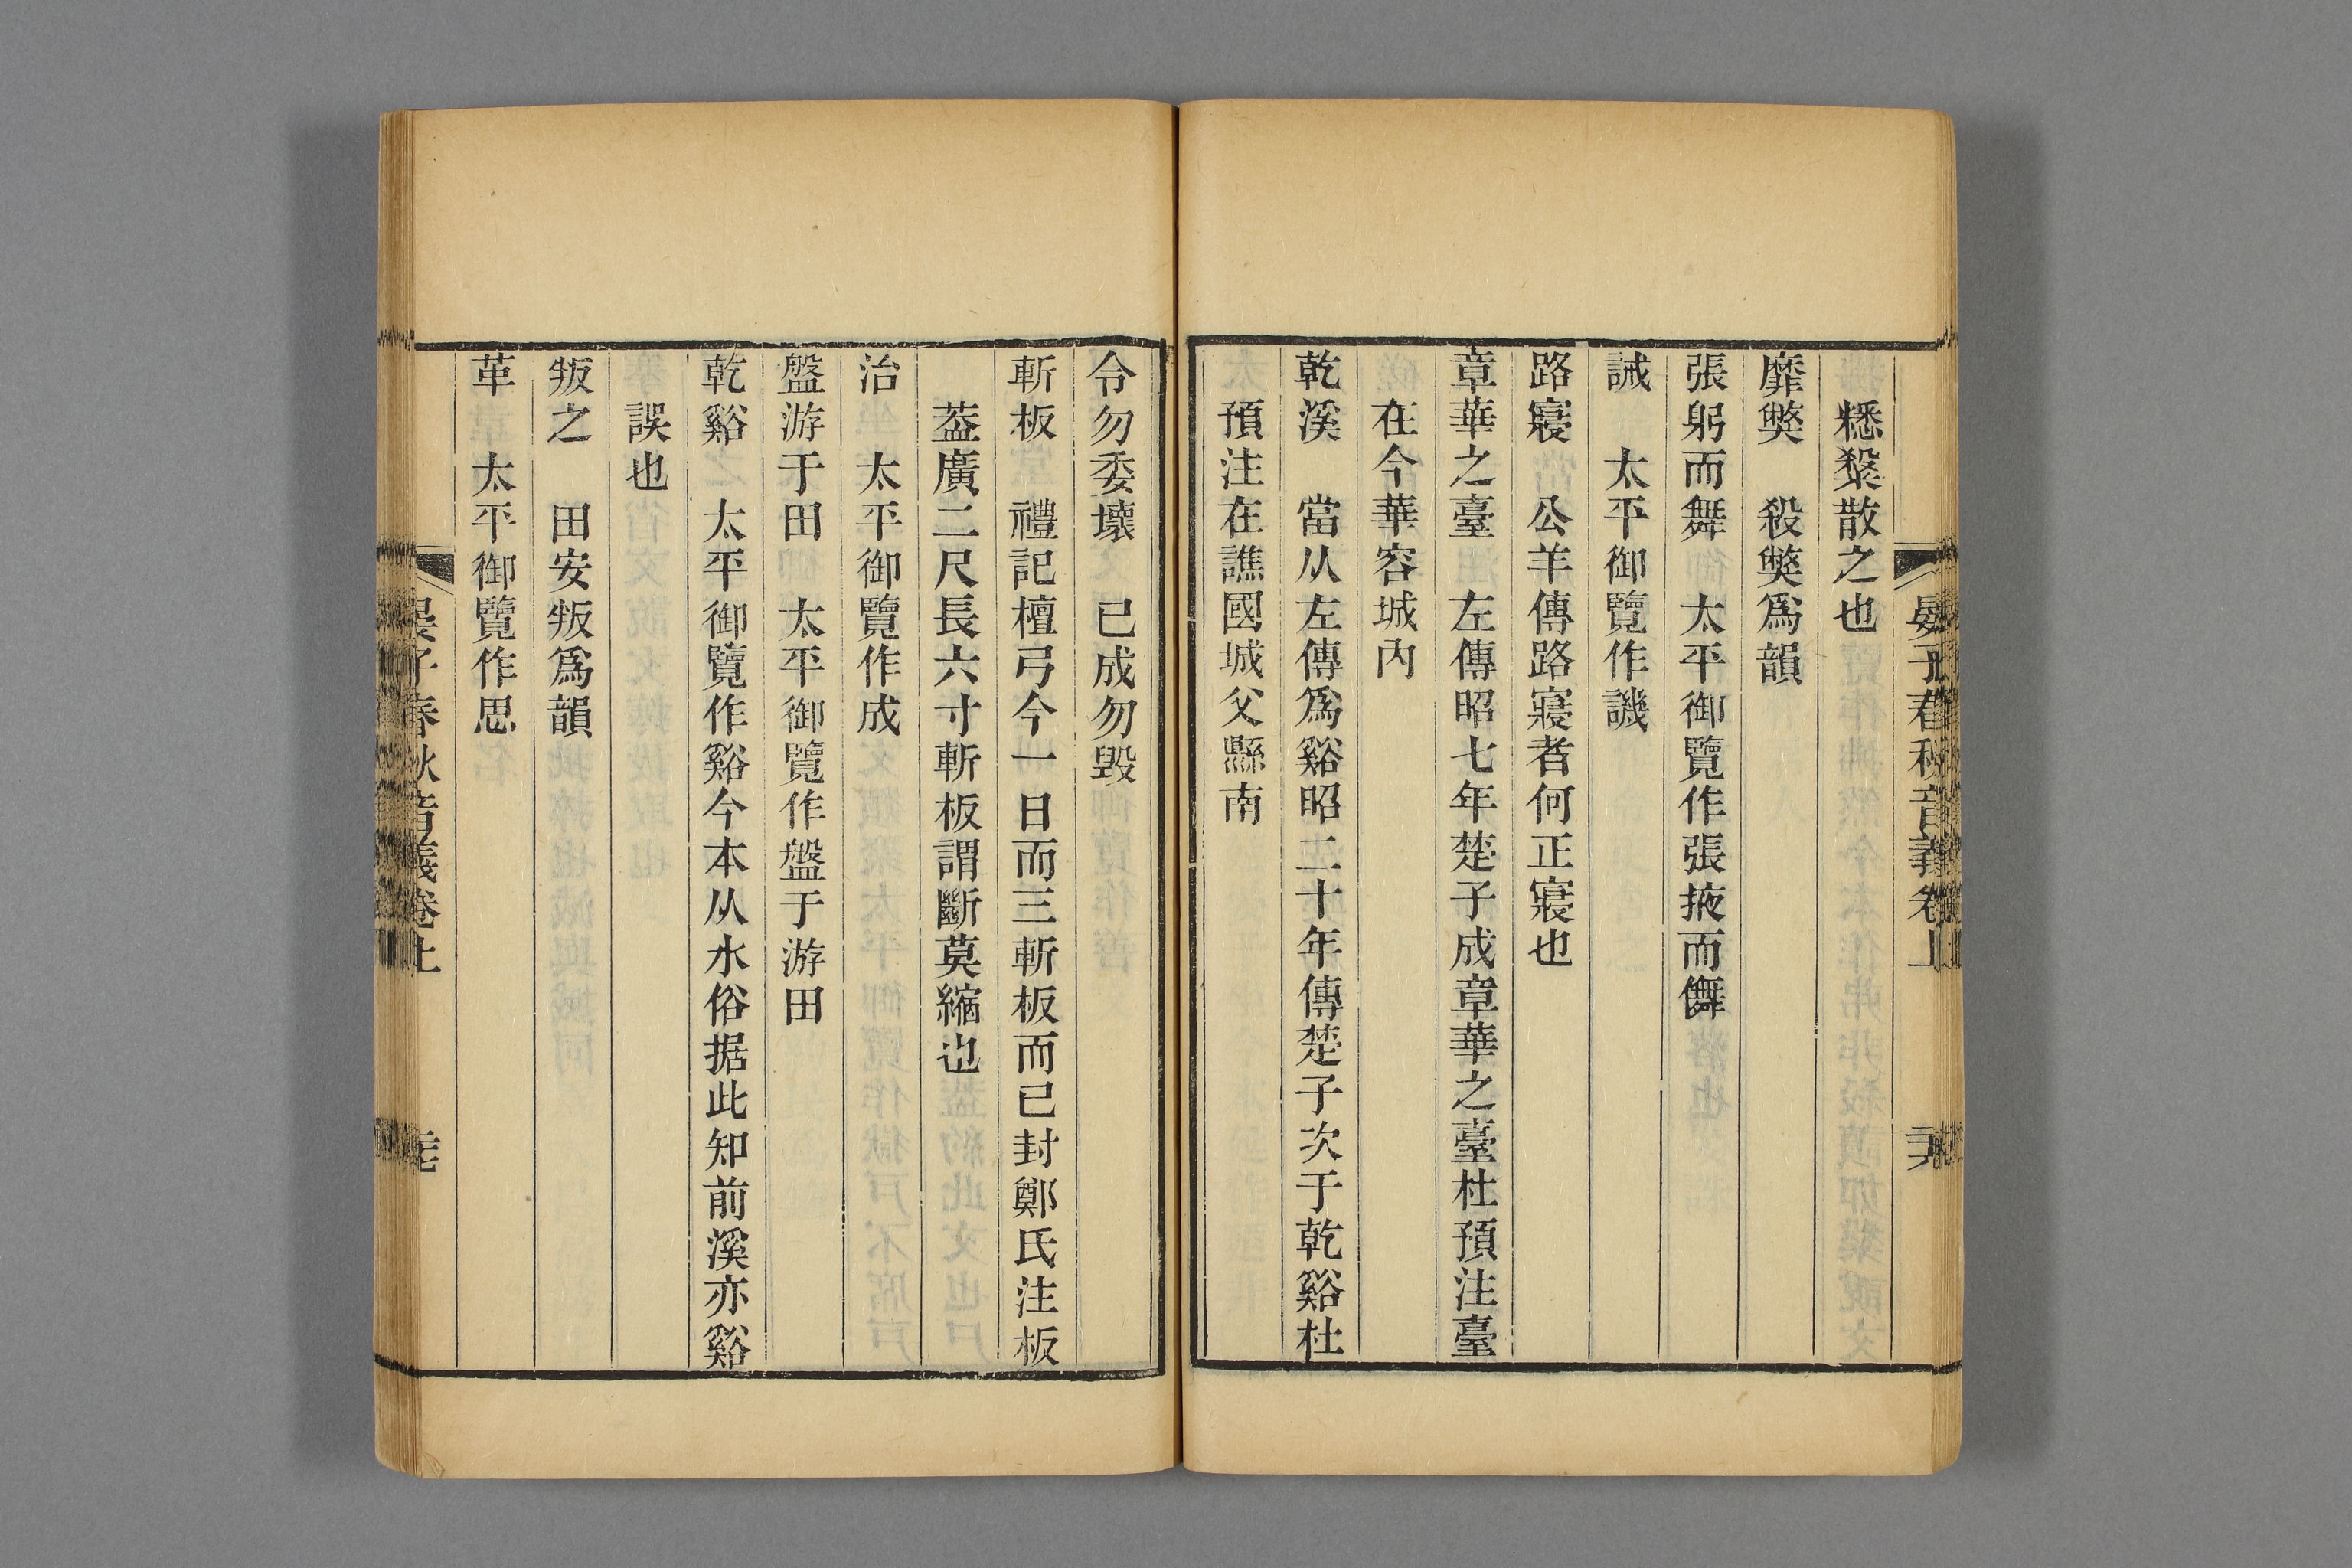 晏子春秋音義卷上
𥻦㩒散之也
靡獘　殺獘爲韻
張躬而舞　太平御覽作張掖而儛
誡　太平御覽作譏
路寢　公羊傳路寢者何正寢也
章華之臺　左傳昭七年楚子成章華之臺杜預注臺
在今華容城内
乾溪　當从左傳爲谿昭二十年傳楚子次于乾谿杜
預注在譙國城父縣南
令勿委壞　已成勿毀
斬板　禮記檀弓今一日而三斬板而已封鄭氏注板
葢廣二尺長六寸斬板謂斷莫縮也
治　太平御覽作成
盤游于田　太平御覽作盤于游田
乾谿　太平御覽作谿今本从水俗据此知前溪亦谿
誤也
叛之　田安叛爲韻
革　太平御覽作思
晏子春秋音義卷上